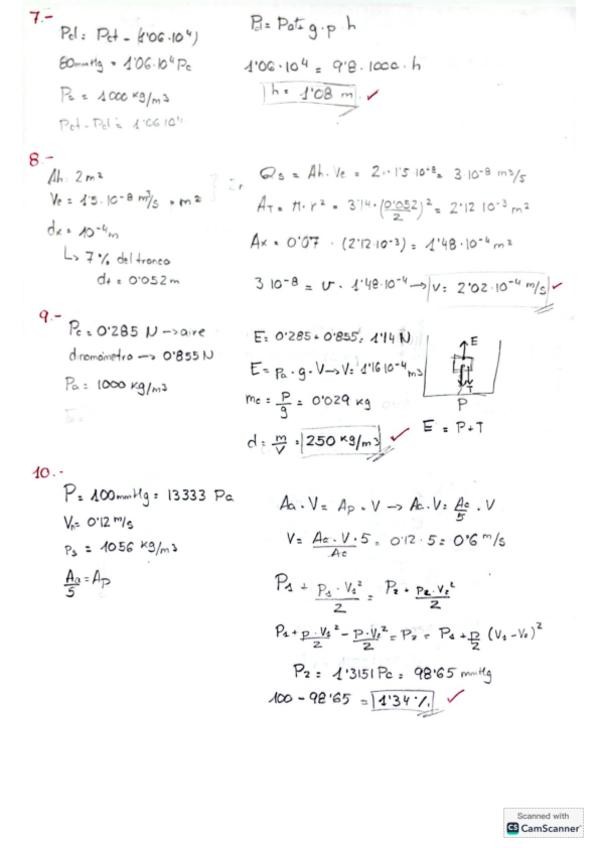 7.-
Pcl = Pct - (1'06·10⁴)
80mmHg = 1'06·10⁴ Pc
Ps = 1000 kg/m³
Pct - Pcl = 1'06·10⁴
Pcl = Pat + g·p·h
1'06·10⁴ = 9'8·1000·h
h = 1'08 m
8.-
Ah. 2m²
Ve = 1'5·10⁻⁸ m³/s * m²
dx = 10⁻⁴m
↳ 7% del tronco
dt = 0'052m
Qs = Ah. Ve = 2·1'5 10⁻⁸ = 3 10⁻⁸ m³/s
AT = π·r² = 3'14·(0'052/2)² = 2'12 10⁻³ m²
Ax = 0'07 · (2'12·10⁻³) = 1'48·10⁻⁴ m²
3 10⁻⁸ = v · 1'48·10⁻⁴ → v = 2'02·10⁻⁴ m/s
9.-
Pc = 0'285 N → aire
dinamómetro → 0'855N
Pa = 1000 kg/m³
E = 0'285 + 0'855 = 1'14 N
E = Pa · g · V → V = 1'16 10⁻⁴ m³
mc = P/g = 0'029 kg
d = m/V = 250 kg/m³
E
T
P
E = P+T
10.-
P = 100mmHg = 13333 Pa
Vp = 0'12 m/s
Ps = 1056 kg/m³
Aa/5 = Ap
Aa · V = Ap · V → Aa · V = Aa/5 · V
V = Aa · V · 5/Aa = 0'12 · 5 = 0'6 m/s
P₁ + P₁ · V₁²/2 = P₂ + P₂·V₂²/2
P₁ + p·V₁²/2 - p·V₂²/2 = P₂ = P₁ + p/2 (V₁ - V₂)²
P₂ = 1'3151 Pc = 98'65 mmHg
100 - 98'65 = 1'34%
Scanned with
CS CamScanner